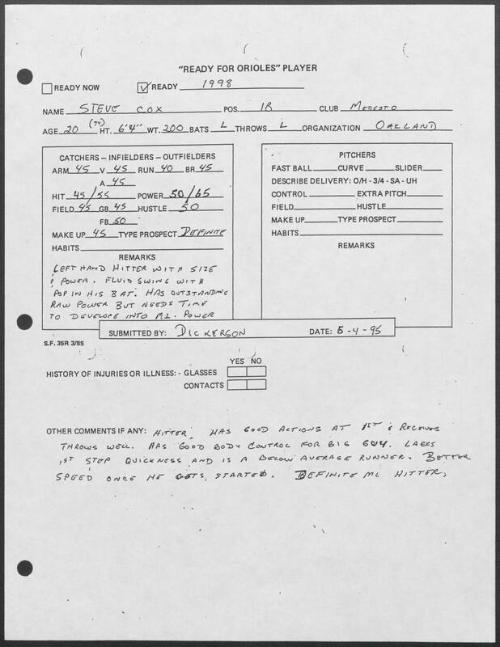 "READY FOR ORIOLES" PLAYER
READY NOW READY 1998
NAME STEVE COX POS. 1B CLUB MODESTO
AGE 20 HT. 6'4" WT. 200 BATS L THROWS L ORGANIZATION OAKLAND
CATCHERS – INFIELDERS – OUTFIELDERS
ARM 45 V 45 RUN 40 BR 45
A 45
HIT 45/55 POWER 50/65
FIELD 45 GB 45 HUSTLE 50
FB 50
MAKE UP 45 TYPE PROSPECT DEFINITE
HABITS
REMARKS
LEFT HAND HITTER WITH SIZE
& POWER. FLUID SWING WITH
POP IN HIS BAT. HAS OUTSTANDING
RAW POWER BUT NEEDS TIME
TO DEVELOPE INTO ML. POWER
PITCHERS
FAST BALL CURVE SLIDER
DESCRIBE DELIVERY: O/H - 3/4 - SA - UH
CONTROL EXTRA PITCH
FIELD HUSTLE
MAKE UP TYPE PROSPECT
HABITS
REMARKS
SUBMITTED BY: DICKERSON DATE: 5-4-95
S.F. 35R 3/85
YES NO
HISTORY OF INJURIES OR ILLNESS: - GLASSES
CONTACTS
OTHER COMMENTS IF ANY: HITTER, HAS GOOD ACTIONS AT 1ST & RECEIVES
THROWS WELL. HAS GOOD BODY CONTROL FOR BIG GUY. LACKS
1ST STEP QUICKNESS AND IS A BELOW AVERAGE RUNNER. BETTER
SPEED ONCE HE GETS STARTED. DEFINITE ML HITTER,